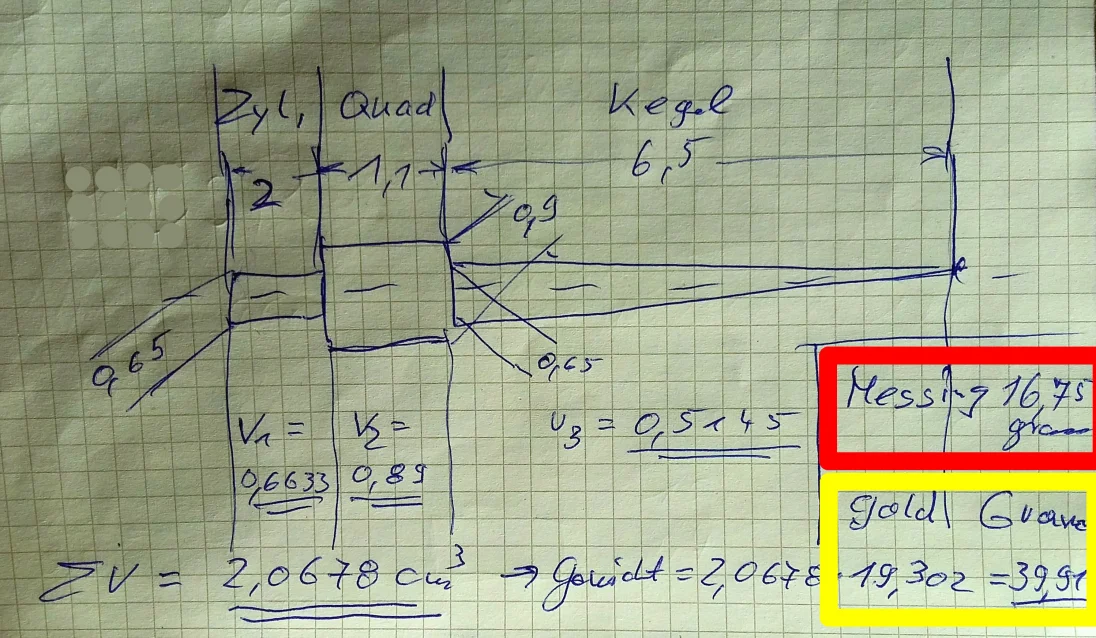 Zyl, Quad Kegel
2 1,1 6,5
0,9
0,65
0,65
Messing 16,75
gram
V1 = V2 = V3 = 0,5145
0,6633 0,89
gold Gramm
ΣV = 2,0678 cm³ → Gewicht = 2,0678 · 19,302 = 39,91